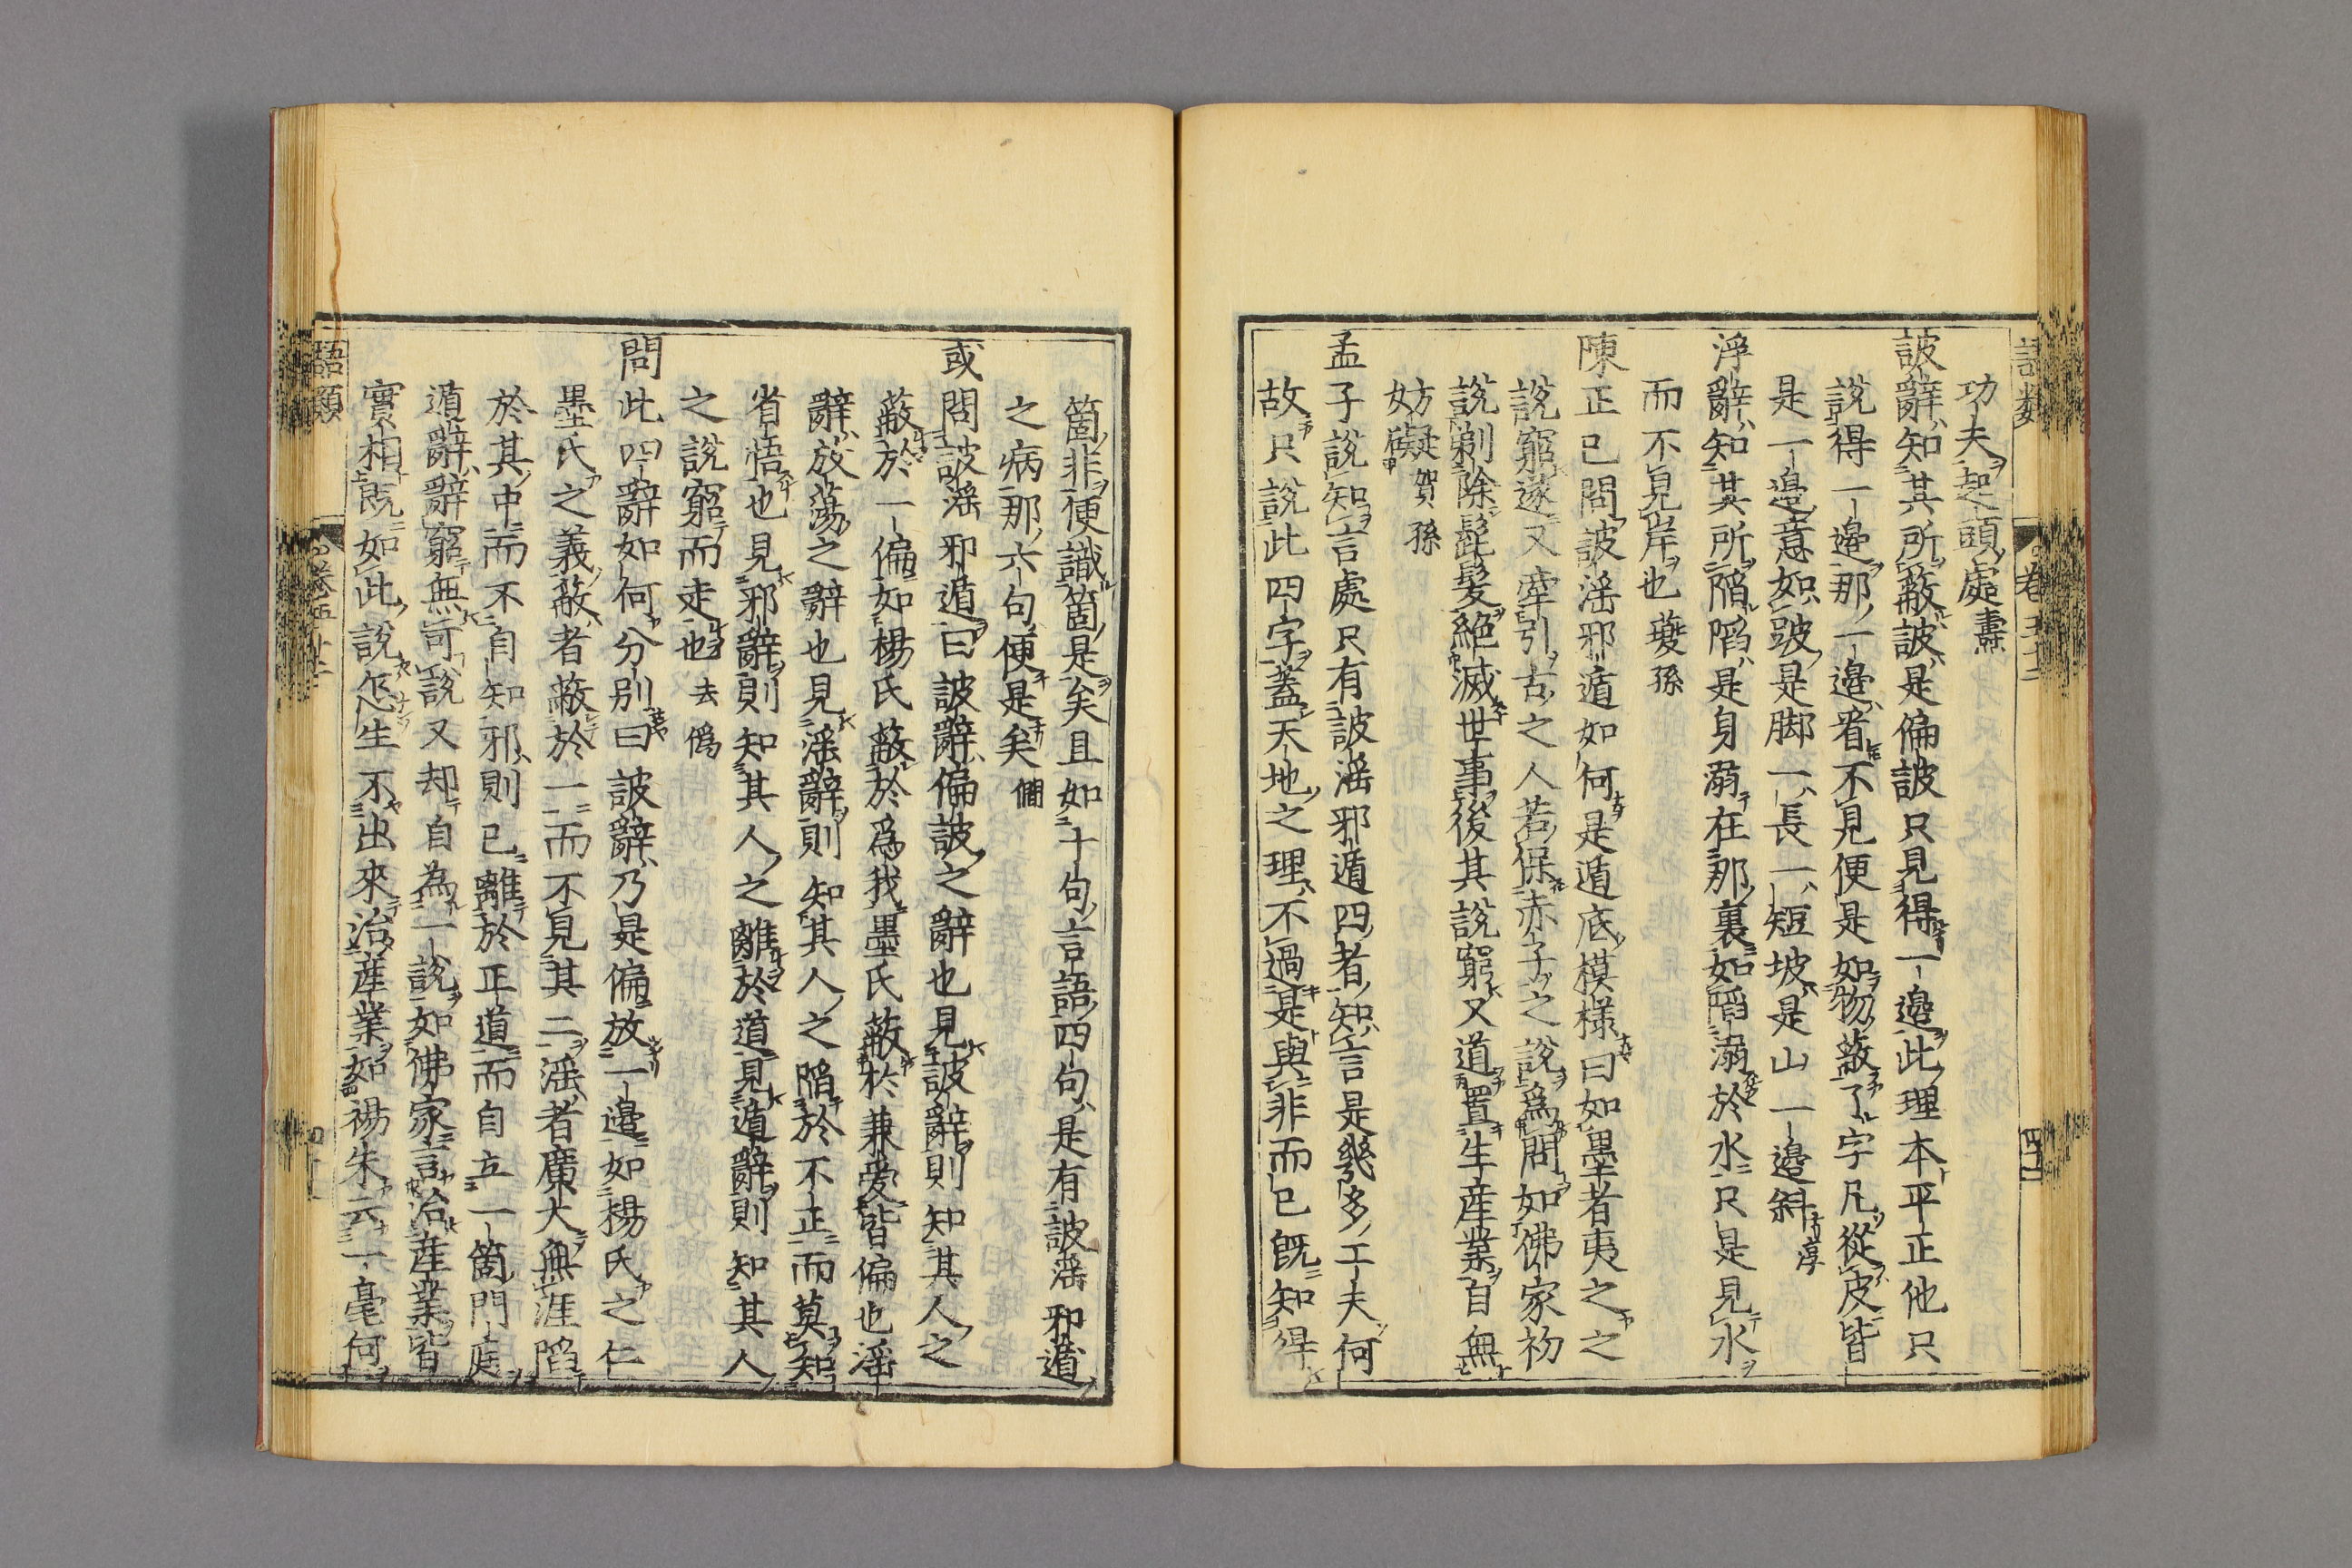 語類
卷五十二
四十一
功夫起頭處燾
詖辭知其所蔽詖是偏詖只見得一邉此理本平正他只
說得一邉那一邉看不見便是如物蔽了字凡從皮皆
是一邉意如跛是脚一長一短坡是山一邉斜淳
淫辭知其所陷陷是身溺在那裏如陷溺於水只是見水
而不見岸也夔孫
陳正己問詖淫邪遁如何是遁底模様曰如墨者夷之之
說窮遂又牽引古之人若保赤子之說爲問如佛家初
說剃除髭髮絕滅世事後其說窮又道置生産業自無
妨礙賀孫
孟子說知言處只有詖淫邪遁四者知言是幾多工夫何
故只說此四字蓋天地之理不過是與非而已既知得
箇非便識箇是矣且如十句言語四句是有詖淫邪遁
之病那六句便是矣僩
或問詖淫邪遁曰詖辭偏詖之辭也見詖辭則知其人之
蔽於一偏如楊氏蔽於爲我墨氏蔽於兼爱皆偏也淫
辭放蕩之辭也見淫辭則知其人之陷於不正而莫知
省悟也見邪辭則知其人之離於道見遁辭則知其人
之說窮而走也去僞
問此四辭如何分別曰詖辭乃是偏放一邉如楊氏之仁
墨氏之義蔽者蔽於一而不見其二淫者廣大無涯陷
於其中而不自知邪則已離於正道而自立一箇門庭
遁辭辭窮無可說又却自為一說如佛家言治産業皆
實相既如此說怎生不出來治産業如楊朱云一毫何
語類
卷五十二